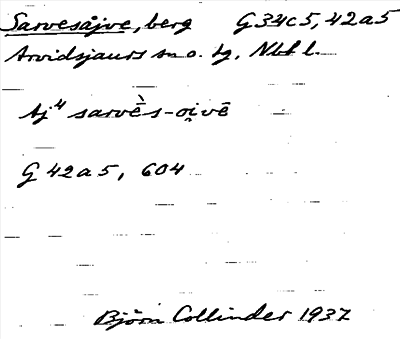 Sarvesåjve, berg G34c5, 42a5
Arvidsjaurs sn o. tg, Nbt l.
Aj⁴ sarvè̄s-oi̯vē
G 42a5, 604
Björn Collinder 1937